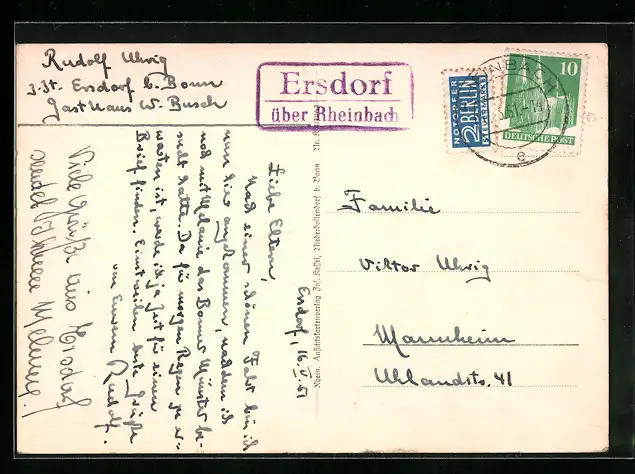 Rudolf Uhrig
z.Zt. Ersdorf b. Bonn
Gasthaus W. Busch
Ersdorf
über Rheinbach
NOTOPFER
2 BERLIN
STEUERMARKE
10
DEUTSCHE POST
e
Ersdorf, 16.V.51
Liebe Eltern,
Nach einer schönen Fahrt bin ich
nun hier angekommen, nachdem ich
noch mit Melanie das Bonner Münster be-
sucht hatte. Da für morgen Regen zu er-
warten ist, werde ich ja Zeit für einen
Brief finden. Einstweilen beste Grüße
von Eurem Rudolf.
Viele Grüße aus Ersdorf
sendet Ihnen Melanie.
Rhein. Ansichtskartenverlag Jos. Kessel, Niederdollendorf b. Bonn
Familie
Viktor Uhrig
Mannheim
Uhlandstr. 41